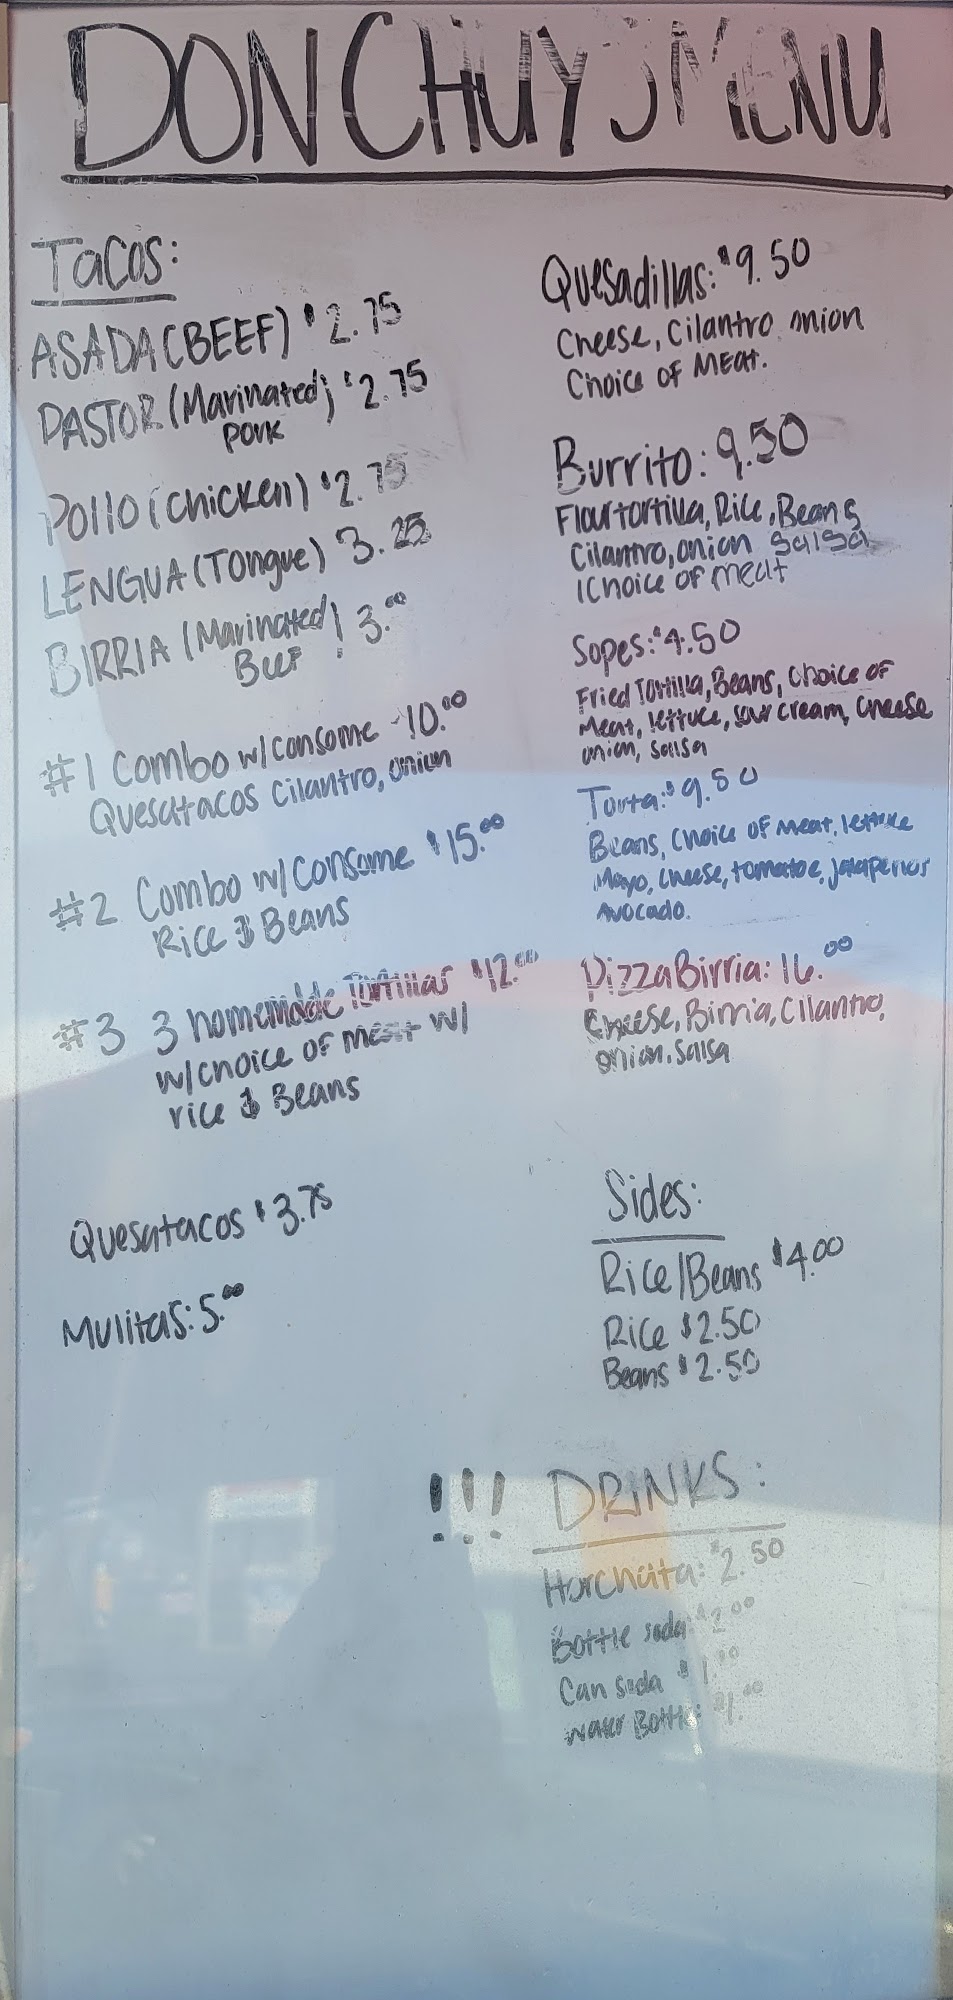 DON CHUY'S MENU
Tacos:
ASADA (BEEF) $2.75
PASTOR (Marinated) $2.75
PORK
POLLO (Chicken) $2.75
LENGUA (Tongue) 3.25
BIRRIA (Marinated) 3.00
BEEF
#1 Combo w/consome -10.00
Quesatacos Cilantro, onion
#2 Combo w/Consome $15.00
Rice & Beans
#3 3 homemade Tortillas $12.00
w/choice of meat w/
rice & Beans
Quesatacos $3.75
Mulitas: 5.00
Quesadillas: $9.50
Cheese, Cilantro, onion
Choice of Meat.
Burrito: 9.50
Flour tortilla, Rice, Beans
Cilantro, onion Salsa
(Choice of meat
Sopes: $4.50
Fried Tortilla, Beans, Choice of
Meat, lettuce, sour cream, Cheese
onion, salsa
Torta: $9.50
Beans, Choice of Meat, lettuce
Mayo, Cheese, tomatoe, jalapenos
Avocado.
Pizza Birria: 16.00
Cheese, Birria, Cilantro,
onion, salsa
Sides:
Rice/Beans $4.00
Rice $2.50
Beans $2.50
!!! DRINKS:
Horchata: $2.50
Bottle soda: $2.00
Can soda $1.00
Water Bottle: $1.00